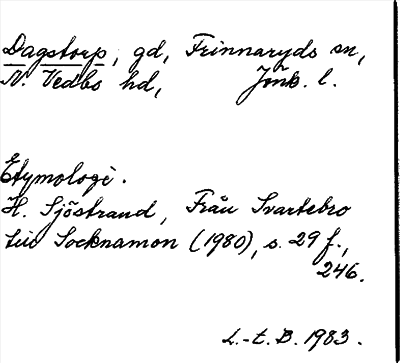 Dagstorp, gd, Frinnaryds sn,
N. Vedbo hd, Jönk. l.
Etymologi.
H. Sjöstrand, Från Svartebro
till Socknamon (1980), s. 29 f.,
246.
L.-t. B. 1983.